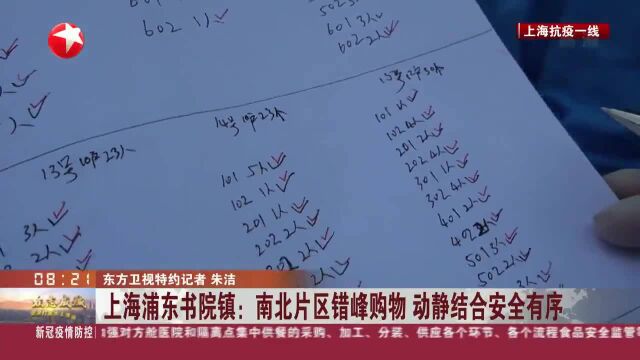 602 1人
502
601 3人
602 2人
上海抗疫一线
13号 10户23人
14号 10户23人
15号 12户30人
101 5人
102 1人
201 1人
202 2人
3人
2人
101 1人
102 4人
201 2人
202 4人
301 1人
302 4人
401 2人
402 2人
501 3人
502 2人
08:21
东方卫视特约记者 朱洁
上海浦东书院镇：南北片区错峰购物 动静结合安全有序
新冠疫情防控
强对方舱医院和隔离点集中供餐的采购、加工、分装、供应各个环节、各个流程食品安全监督管